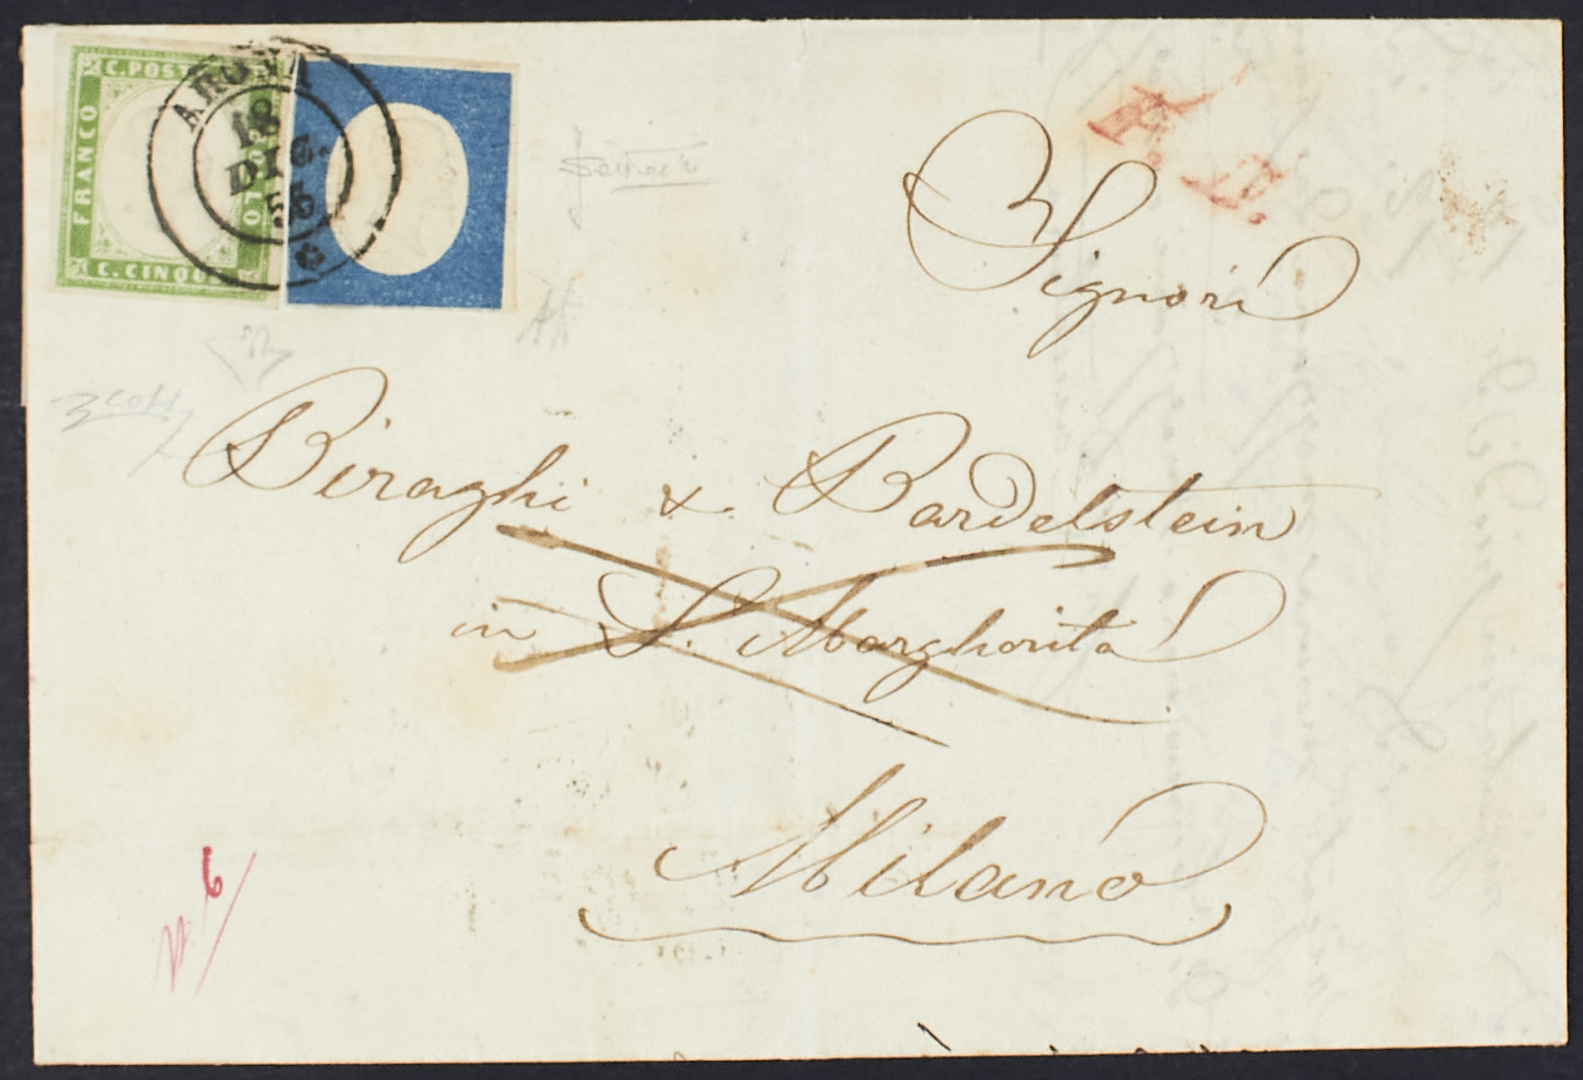 C. POST
FRANCO
BOLLO
C. CINQUE
ARONA
18
DIC.
55
Signori
Biraghi & Bardelstein
in S. Margherita
Milano